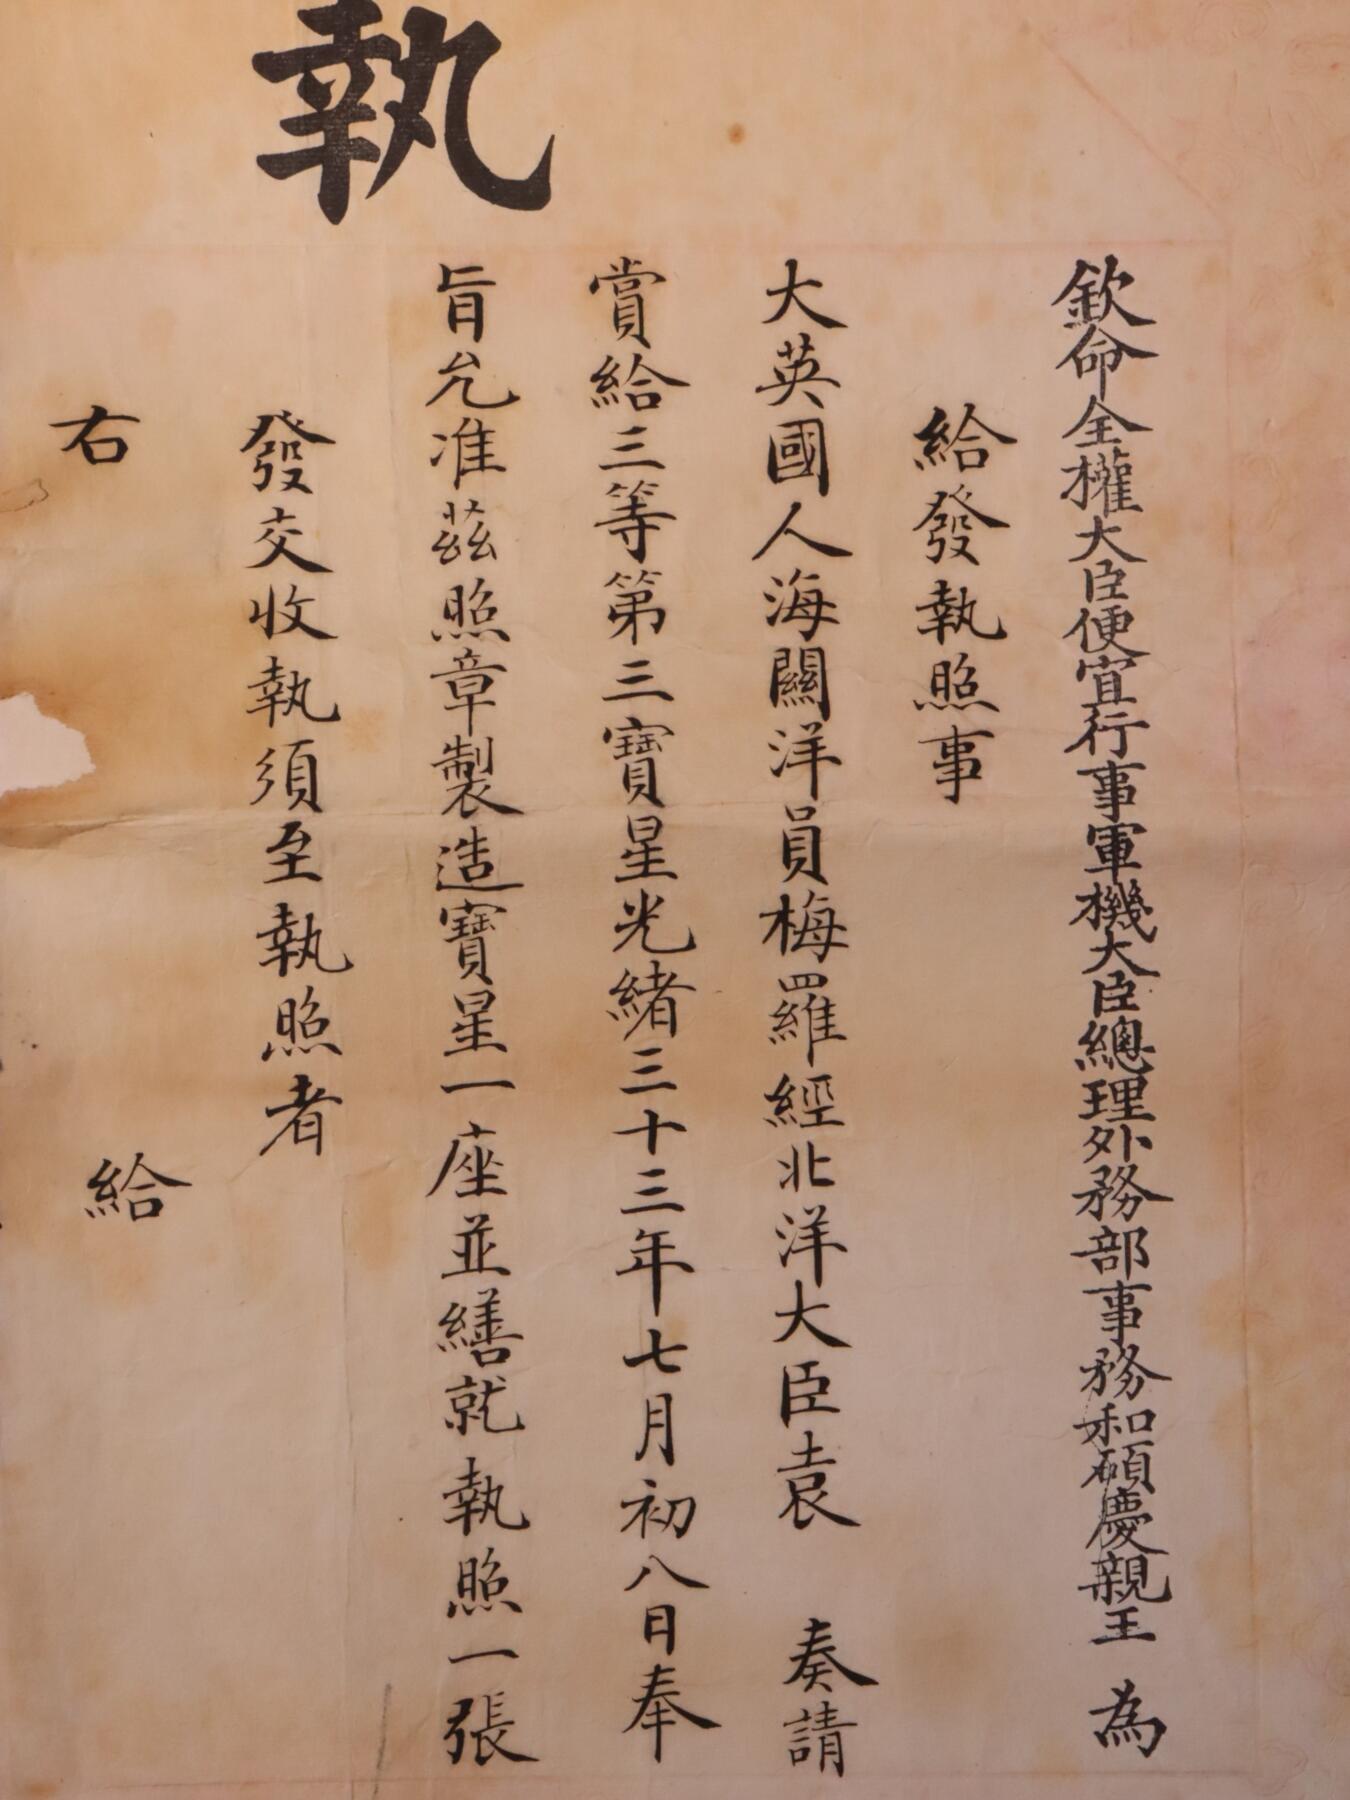 執
欽命全權大臣便宜行事軍機大臣總理外務部事務和碩慶親王 為
給發執照事
大英國人海關洋員梅羅經北洋大臣袁 奏請
賞給三等第三寶星光緒三十三年七月初八日奉
旨允准茲照章製造寶星一座並繕就執照一張
發交收執須至執照者
右 給